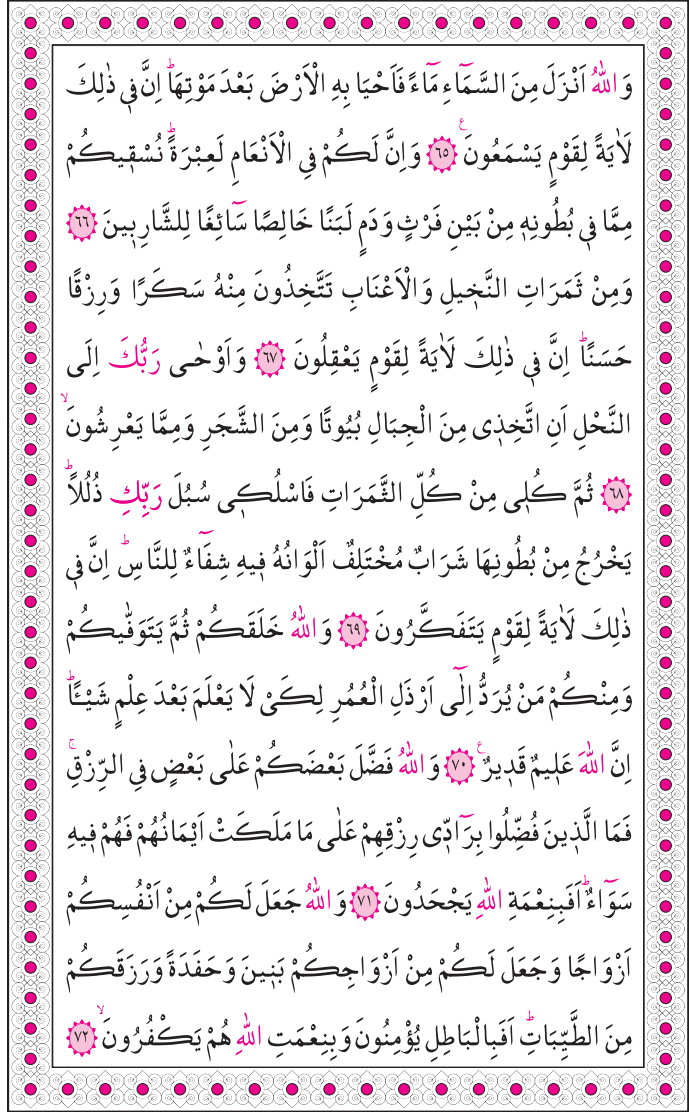 وَاللّٰهُ اَنْزَلَ مِنَ السَّمَٓاءِ مَٓاءً فَاَحْيَا بِهِ الْاَرْضَ بَعْدَ مَوْتِهَاۜ اِنَّ ف۪ي ذٰلِكَ
لَاٰيَةً لِقَوْمٍ يَسْمَعُونَ۟ ﴿٦٥﴾ وَاِنَّ لَكُمْ فِي الْاَنْعَامِ لَعِبْرَةًۜ نُسْق۪يكُمْ
مِمَّا ف۪ي بُطُونِه۪ مِنْ بَيْنِ فَرْثٍ وَدَمٍ لَبَنًا خَالِصًا سَٓائِغًا لِلشَّارِب۪ينَ ﴿٦٦﴾
وَمِنْ ثَمَرَاتِ النَّخ۪يلِ وَالْاَعْنَابِ تَتَّخِذُونَ مِنْهُ سَكَرًا وَرِزْقًا
حَسَنًاۜ اِنَّ ف۪ي ذٰلِكَ لَاٰيَةً لِقَوْمٍ يَعْقِلُونَ ﴿٦٧﴾ وَاَوْحٰى رَبُّكَ اِلَى
النَّحْلِ اَنِ اتَّخِذ۪ي مِنَ الْجِبَالِ بُيُوتًا وَمِنَ الشَّجَرِ وَمِمَّا يَعْرِشُونَۙ
﴿٦٨﴾ ثُمَّ كُل۪ي مِنْ كُلِّ الثَّمَرَاتِ فَاسْلُك۪ي سُبُلَ رَبِّكِ ذُلُلًاۜ
يَخْرُجُ مِنْ بُطُونِهَا شَرَابٌ مُخْتَلِفٌ اَلْوَانُهُ ف۪يهِ شِفَٓاءٌ لِلنَّاسِۜ اِنَّ ف۪ي
ذٰلِكَ لَاٰيَةً لِقَوْمٍ يَتَفَكَّرُونَ ﴿٦٩﴾ وَاللّٰهُ خَلَقَكُمْ ثُمَّ يَتَوَفّٰيكُمْ
وَمِنْكُمْ مَنْ يُرَدُّ اِلٰٓى اَرْذَلِ الْعُمُرِ لِكَيْ لَا يَعْلَمَ بَعْدَ عِلْمٍ شَيْـًٔاۜ
اِنَّ اللّٰهَ عَل۪يمٌ قَد۪يرٌ۟ ﴿٧٠﴾ وَاللّٰهُ فَضَّلَ بَعْضَكُمْ عَلٰى بَعْضٍ فِي الرِّزْقِۚ
فَمَا الَّذ۪ينَ فُضِّلُوا بِرَٓادّ۪ي رِزْقِهِمْ عَلٰى مَا مَلَكَتْ اَيْمَانُهُمْ فَهُمْ ف۪يهِ
سَوَٓاءٌۜ اَفَبِنِعْمَةِ اللّٰهِ يَجْحَدُونَ ﴿٧١﴾ وَاللّٰهُ جَعَلَ لَكُمْ مِنْ اَنْفُسِكُمْ
اَزْوَاجًا وَجَعَلَ لَكُمْ مِنْ اَزْوَاجِكُمْ بَن۪ينَ وَحَفَدَةً وَرَزَقَكُمْ
مِنَ الطَّيِّبَاتِۜ اَفَبِالْبَاطِلِ يُؤْمِنُونَ وَبِنِعْمَتِ اللّٰهِ هُمْ يَكْفُرُونَۙ ﴿٧٢﴾